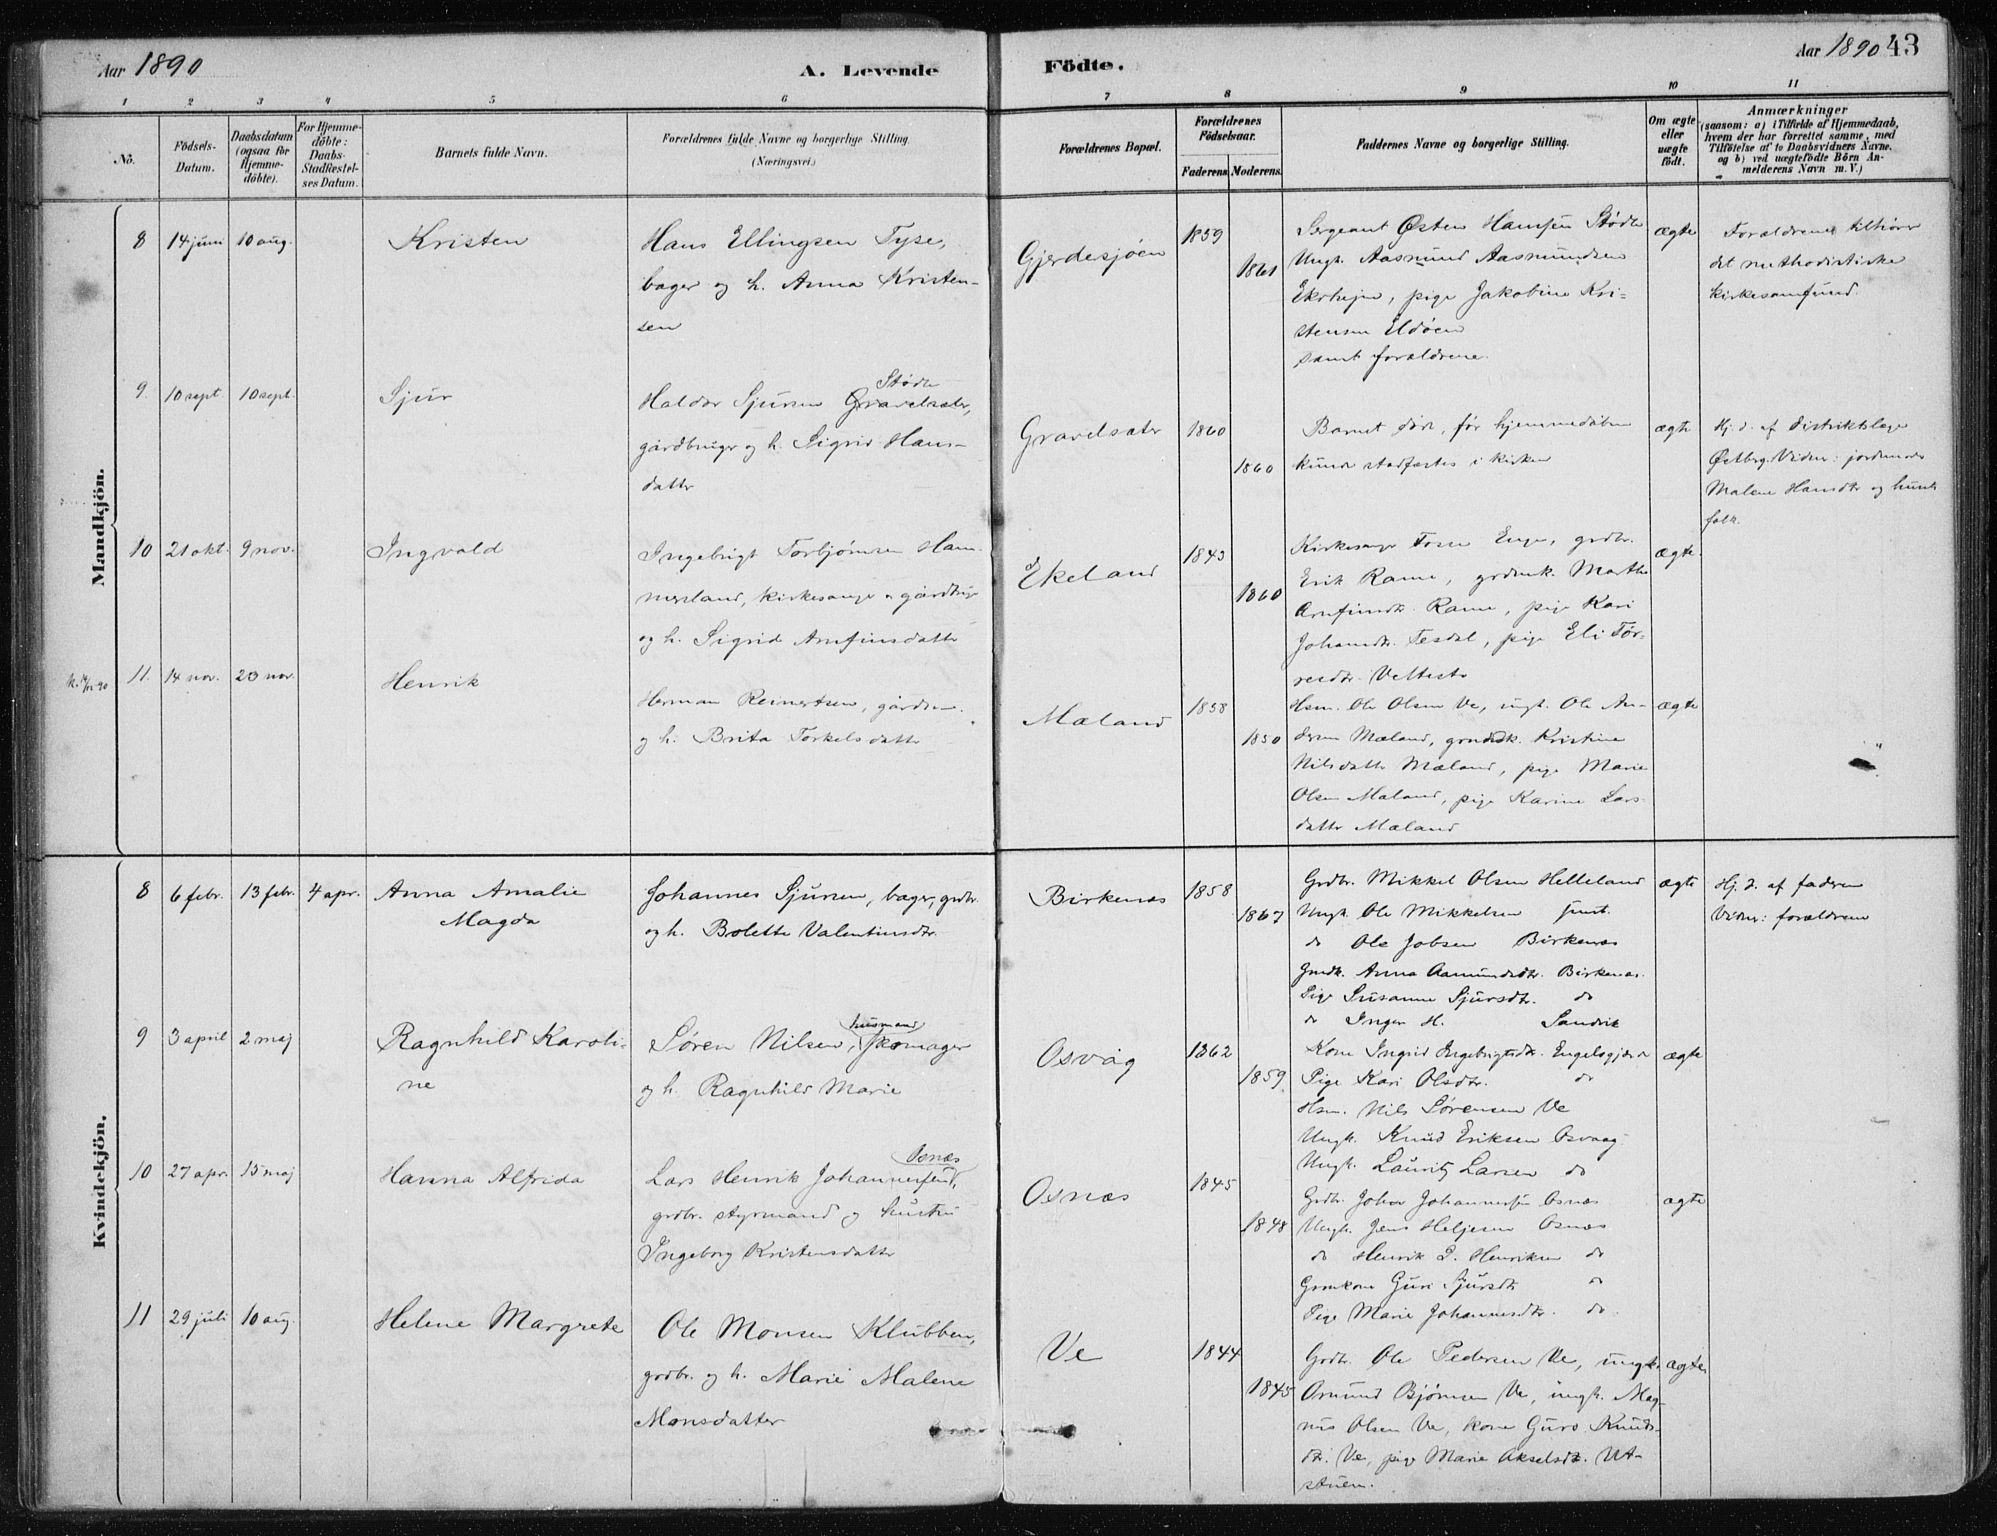 Aar 1890
A. Levende
Födte.
Aar 1890
43
1 2 3 4 5 6 7 8 9 10 11
No.
Födsels-
Datum.
Daabsdatum
(ogsaa for
Hjemme-
döbte).
For Hjemme-
döbte:
Daabs-
Stadfestel-
ses Datum.
Barnets fulde Navn.
Forældrenes fulde Navne og borgerlige Stilling.
(Næringsvei.)
Forældrenes Bopæl.
Forældrenes
Födselsaar.
Faderens.
Moderens.
Faddernes Navne og borgerlige Stilling.
Om ægte
eller
uægte
födt.
Anmærkninger
(saasom: a) i Tilfælde af Hjemmedaab,
hvem der har forrettet samme, med
Tilföielse af to Daabsvidners Navne,
og b) ved uægtefödte Börn An-
melderens Navn m.V.)
Mandkjön.
8 14 juni 10 aug. Kristen
Hans Ellingsen Tyse,
bager og h. Anna Kristen-
sen
Gjerdesjøen
1859
1861
Sergeant Østen Hansen Stødle
Ungk. Aasmund Aasmundsen
pige Jakobine Kri-
stensen Eldøen
samt forældrene.
ægte
Forældrene tilhører
det methodistiske
kirkesamfund.
9. 10 sept. 10 sept. Sjur
Stødle
Haldor Sjursen Gravelsæter,
gårdbruger og h. Sigrid Hans-
datter
Gravelsæter
1860
1860
Barnet døde, før hjemmedåben
kunde stadfæstes i kirken
ægte
Hj. d. af distriktslæge
Østberg. Vidner: jordemoder
Malene Hansdtr og hendes
folk.
10 21 okt. 9 nov. Ingvald
Ingebrigt Torbjørnsen Ham-
mersland, kirkesanger og gårdbruger
og h. Sigrid Arnfinsdatter
Ekeland
1843
1860
Kirkesanger Enge, grdbr.
Erik Ramme, grdmk. Marthe
Arnfinsdtr. Ramme, pige Kari
Johannsdtr. Tesdal, pige Eli Tør-
resdtr.
ægte.
k. 14/12 90
11. 14 nov. 23 nov. Henrik
Herman Reinertsen, gårdm.
og h. Brita Torkelsdatter
Mæland
1858
1850
Hsm. Ole Olsen Ve, ungk. Ole An-
dersen Mæland, grmdk. Kristine
Nilsdatter Mæland, pige Marie
Olsen Mæland, pige Karine Lars-
datter Mæland
ægte
Kvindekjön.
8 6 febr. 13 febr. 4 apr. Anna Amalie
Magda
Johannes Sjursen, bager, grdbr.
og h. Bolette Valentinsdtr.
Birkenæs
1858
1867
Grdbr. Mikkel Olsen Helleland
Ungk. Ole Mikkelsen
do Ole Jobsen Birkenæs
Grmdk. Anna Aamundsdtr. Birkenæs.
Pige Susanne Sjursdtr. do
do Inger H. Sandvik
ægte
Hj. d. af faderen
Vidner: forældrene
9 3 april 2 maj Ragnhild Karoli-
ne
husmand
Søren Nilsen, skomager
og h. Ragnhild Marie
Osvåg
1862
1859.
Kone Ingrid Ingebrigtsdtr. Engelsgjerde
Pige Kari Olsdtr. do
Hsm. Nils Sørensen Ve
Ungk. Knud Eriksen Osvaag.
Ungk. Lauritz Larsen do
ægte
10 27 apr. 15 maj Hanna Alfrida
Osnæs
Lars Henrik Johannessen,
grdbr. styrmand og hustru
Ingeborg Kristensdatter
Osnæs
1845
1848
Grdbr. Johan Johannessen Osnæs
Ungk. Jens Heljesen Osnæs
do Henrik L. Henriksen do
Grmkone Guri Sjursdtr do
Pige Marie Johannesdtr. do.
ægte
11 29 juli 10 aug. Helene Margrete
Ole Monsen Klubben,
grdbr. og h. Marie Malene
Monsdatter
Ve
1844
1845
Grdbr. Ole Pedersen Ve, ungk.
Osmund Bjørnsen Ve, ungk. Mag-
nus Olsen Ve, kone Guro Knuds-
dtr. Ve, pige Marie Akselsdtr. Ut-
stuen.
ægte